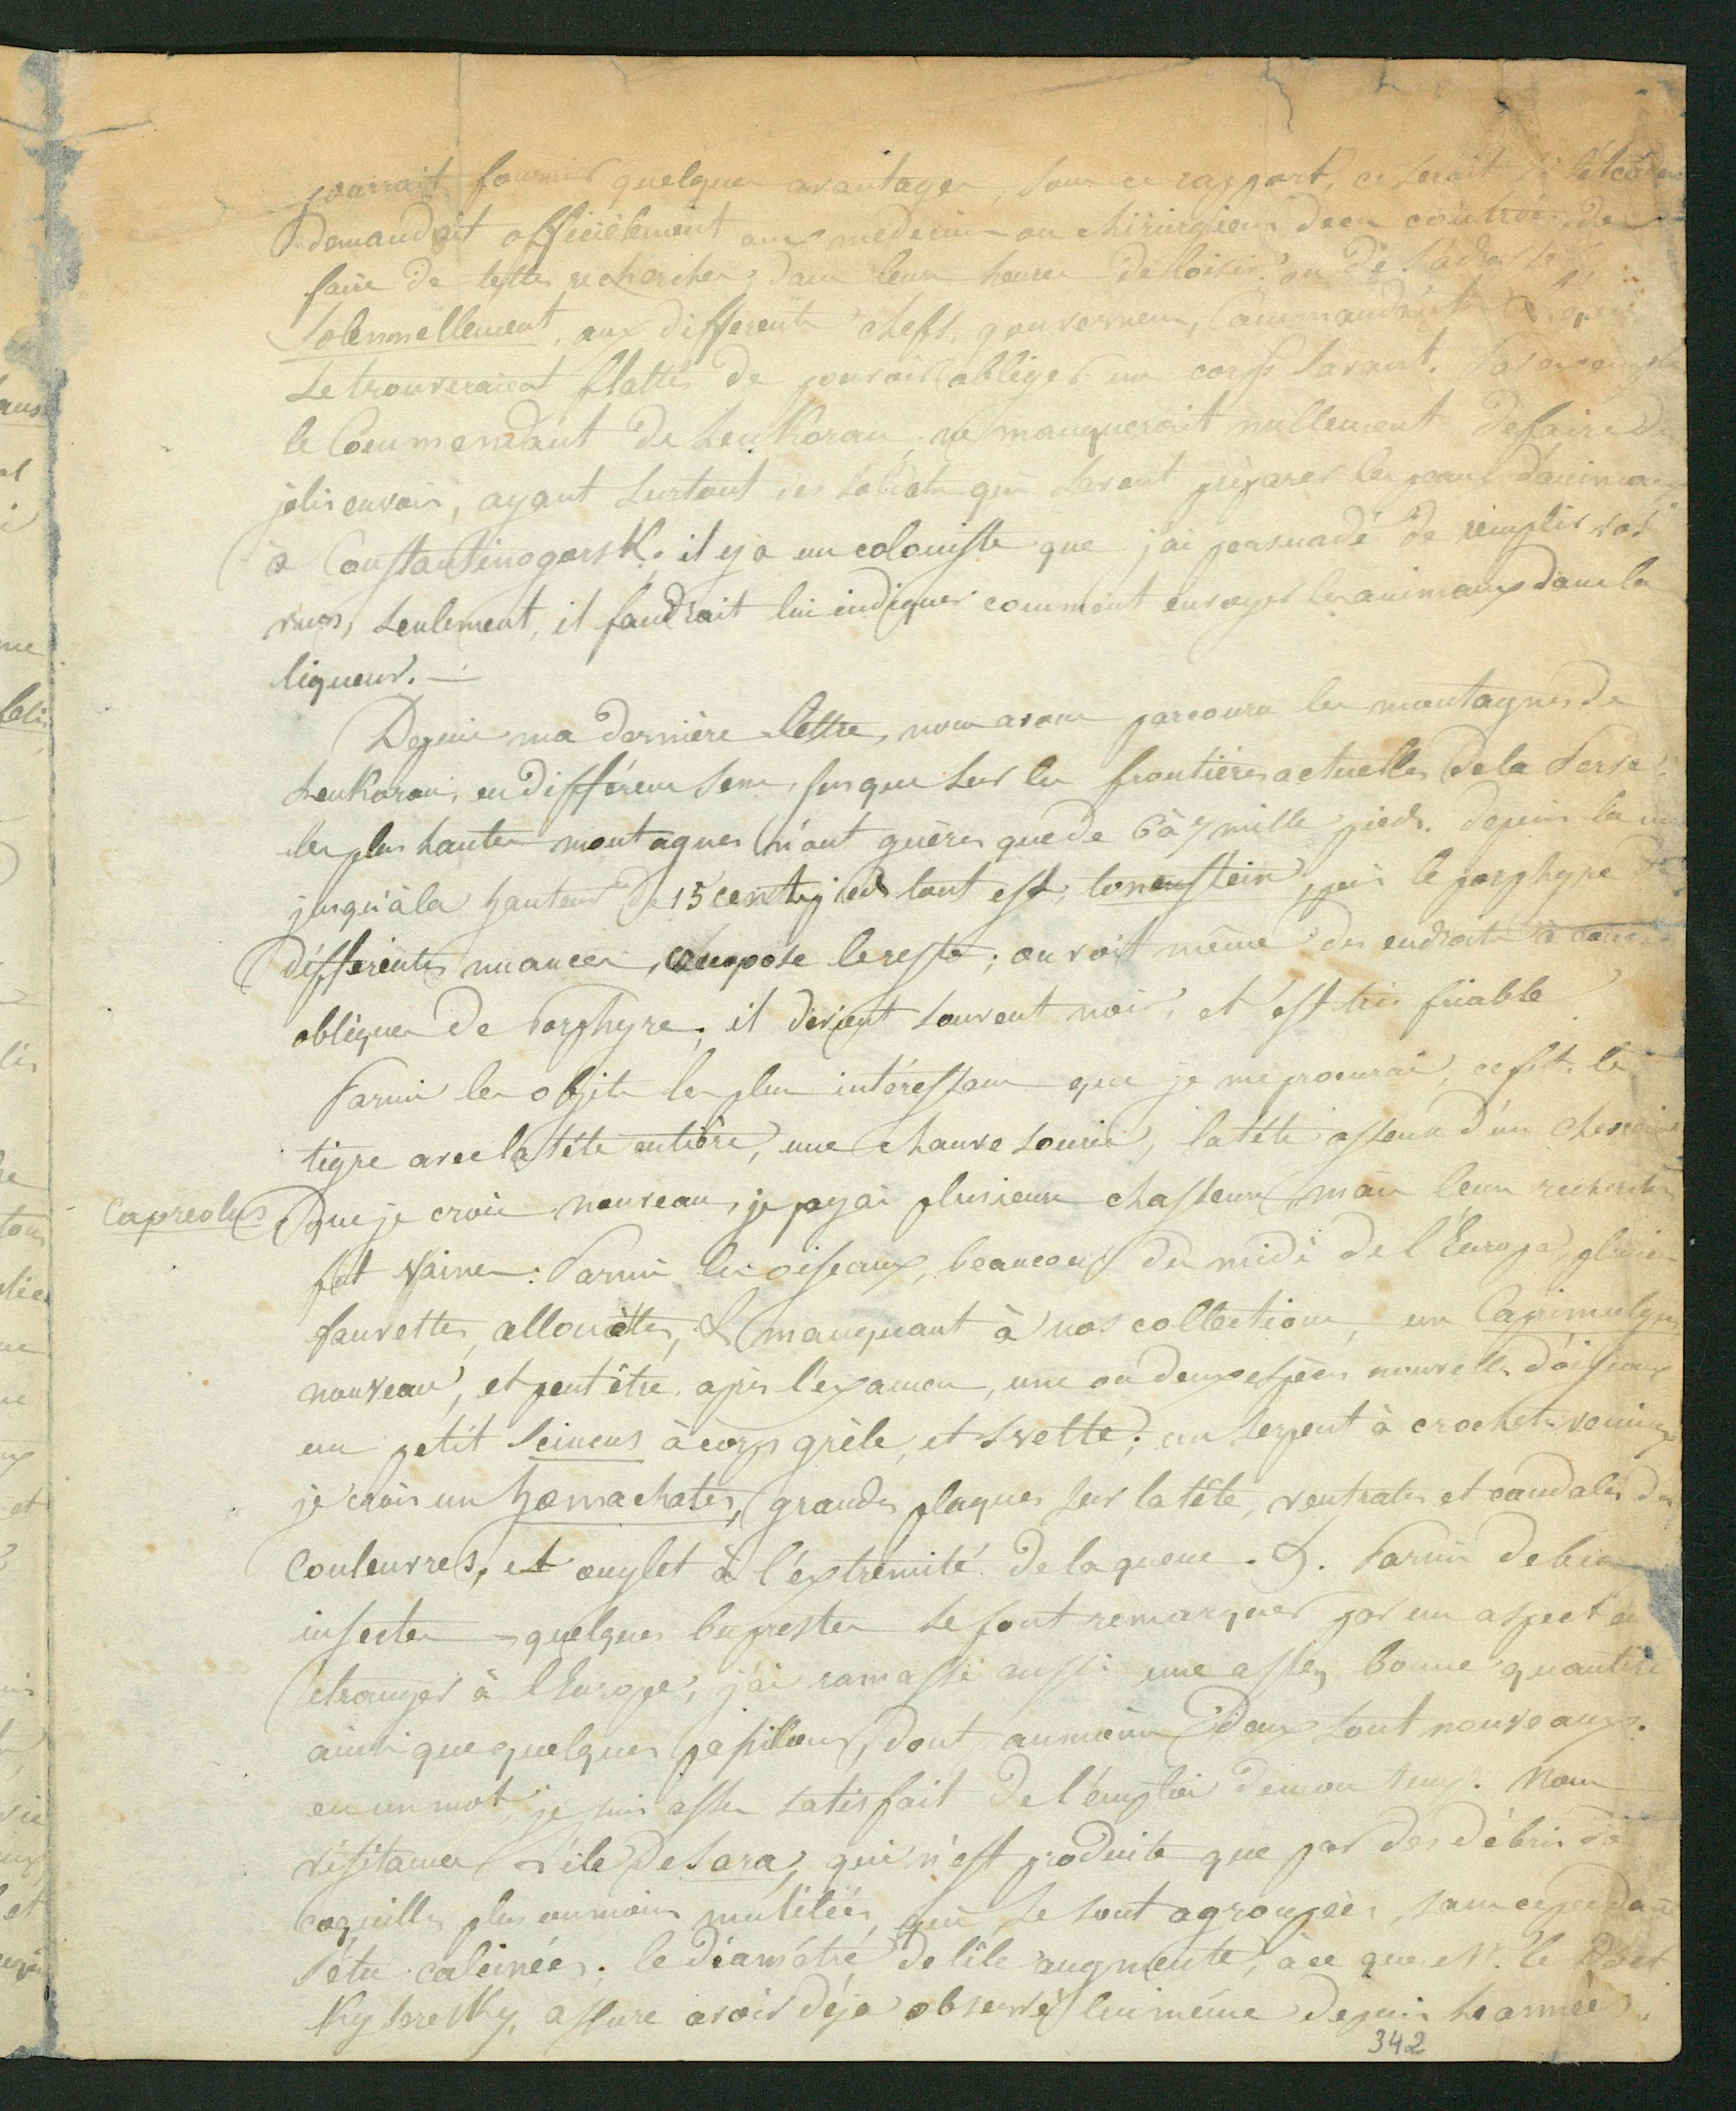 pourrait fournir quelques avantages, sous ce rapport, ce serait si
demandait officiélement aux medecins ou chirurgiens de ces contrées de
faire de telles recherches, dans leurs heures de loisir; ou de s'adresser
Solennellement, aux differents chefs, gouverneurs, Commandants &
se trouveraient flattés de pouvoir obliger un corps savant. Par exemple
le Commendant de Lenkoran, ne manquerait nullement de faire de
jolis envois, ayant surtout des soldats qui savent préparer les peaux d'animaux
à Constantinogorsk, il y a un coloniste que j'ai persuadé de remplir vos
vues, seulement, il faudrait lui indiquer comment envoyer les animaux dans la
liqueur. —
Depuis ma dernière lettre, nous avons parcouru les montagnes de
Lenkoran, en différens sens, jusque sur les frontières actuelles de la Perse.
les plus hautes montagnes n'ont guères que de 6 à 7 mille pieds. depuis la
jusqu'à la hauteur de 15 cent pieds tout est, tonenstein, puis le porphyre de
différentes nuances, compose le reste; on voit même des endroits à
obliques de Porphyre; il devient souvent noir, et est très friable
Parmi les objets les plus intéressans que je me procurai, ce fut le
tigre avec la tête entière, une chauve souris, la tête osseuse d'un
Capreolus que je crois nouveau, je payai plusieurs chasseurs mais leurs recherches
fut vaines. Parmi les oiseaux, beaucoup du midi de l'Europe, plusieurs
fauvettes, allouètes, & manquant à nos collections, un Caprimulgus
nouveau, et peut être, après l'examen, une ou deux espèces nouvelles d'oiseaux
un petit Scincus à corps grèle, et svelte; un serpent à crochets venimeux
je crois un Hæmachates, grandes plaques sur la tête, ventrales et caudales des
Couleuvres, et onglet à l'éxtrémité de la queue. &. Parmi de bien
insectes quelques buprestes se font remarquer par un aspect
étranger à l'Europe, j'ai ramassé aussi une assez bonne quantité
ainsi que quelques papillons, dont aumoins deux sont nouveaux.
en un mot, je suis assez satisfait de l'emploi de mon temps. Nous
visitames l'ile de Sara, qui n'est produite que par des débris de
coquilles plus ou moins mutilées, qui se sont agroupées, sans cependant
s'étre calcinées; le diamétre de l'ile augmente, à ce que M. le
assure avoir déja observé lui même depuis
342